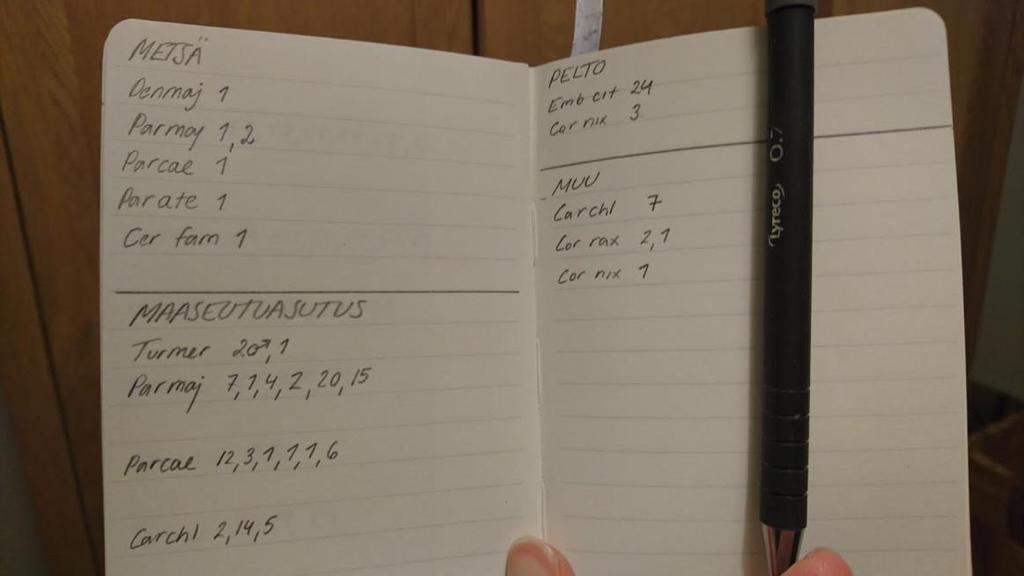 METSÄ
Denmaj 1
Parmaj 1,2
Parcae 1
Parate 1
Cer fam 1
MAASEUTUASUTUS
Turmer 2♂,1
Parmaj 7,1,4,2,20,15
Parcae 12,3,1,1,1,6
Carchl 2,14,5
PELTO
Emb cit 24
Cor nix 3
MUU
Carchl 7
Cor rax 2,1
Cor nix 1
Lyreco 0.7